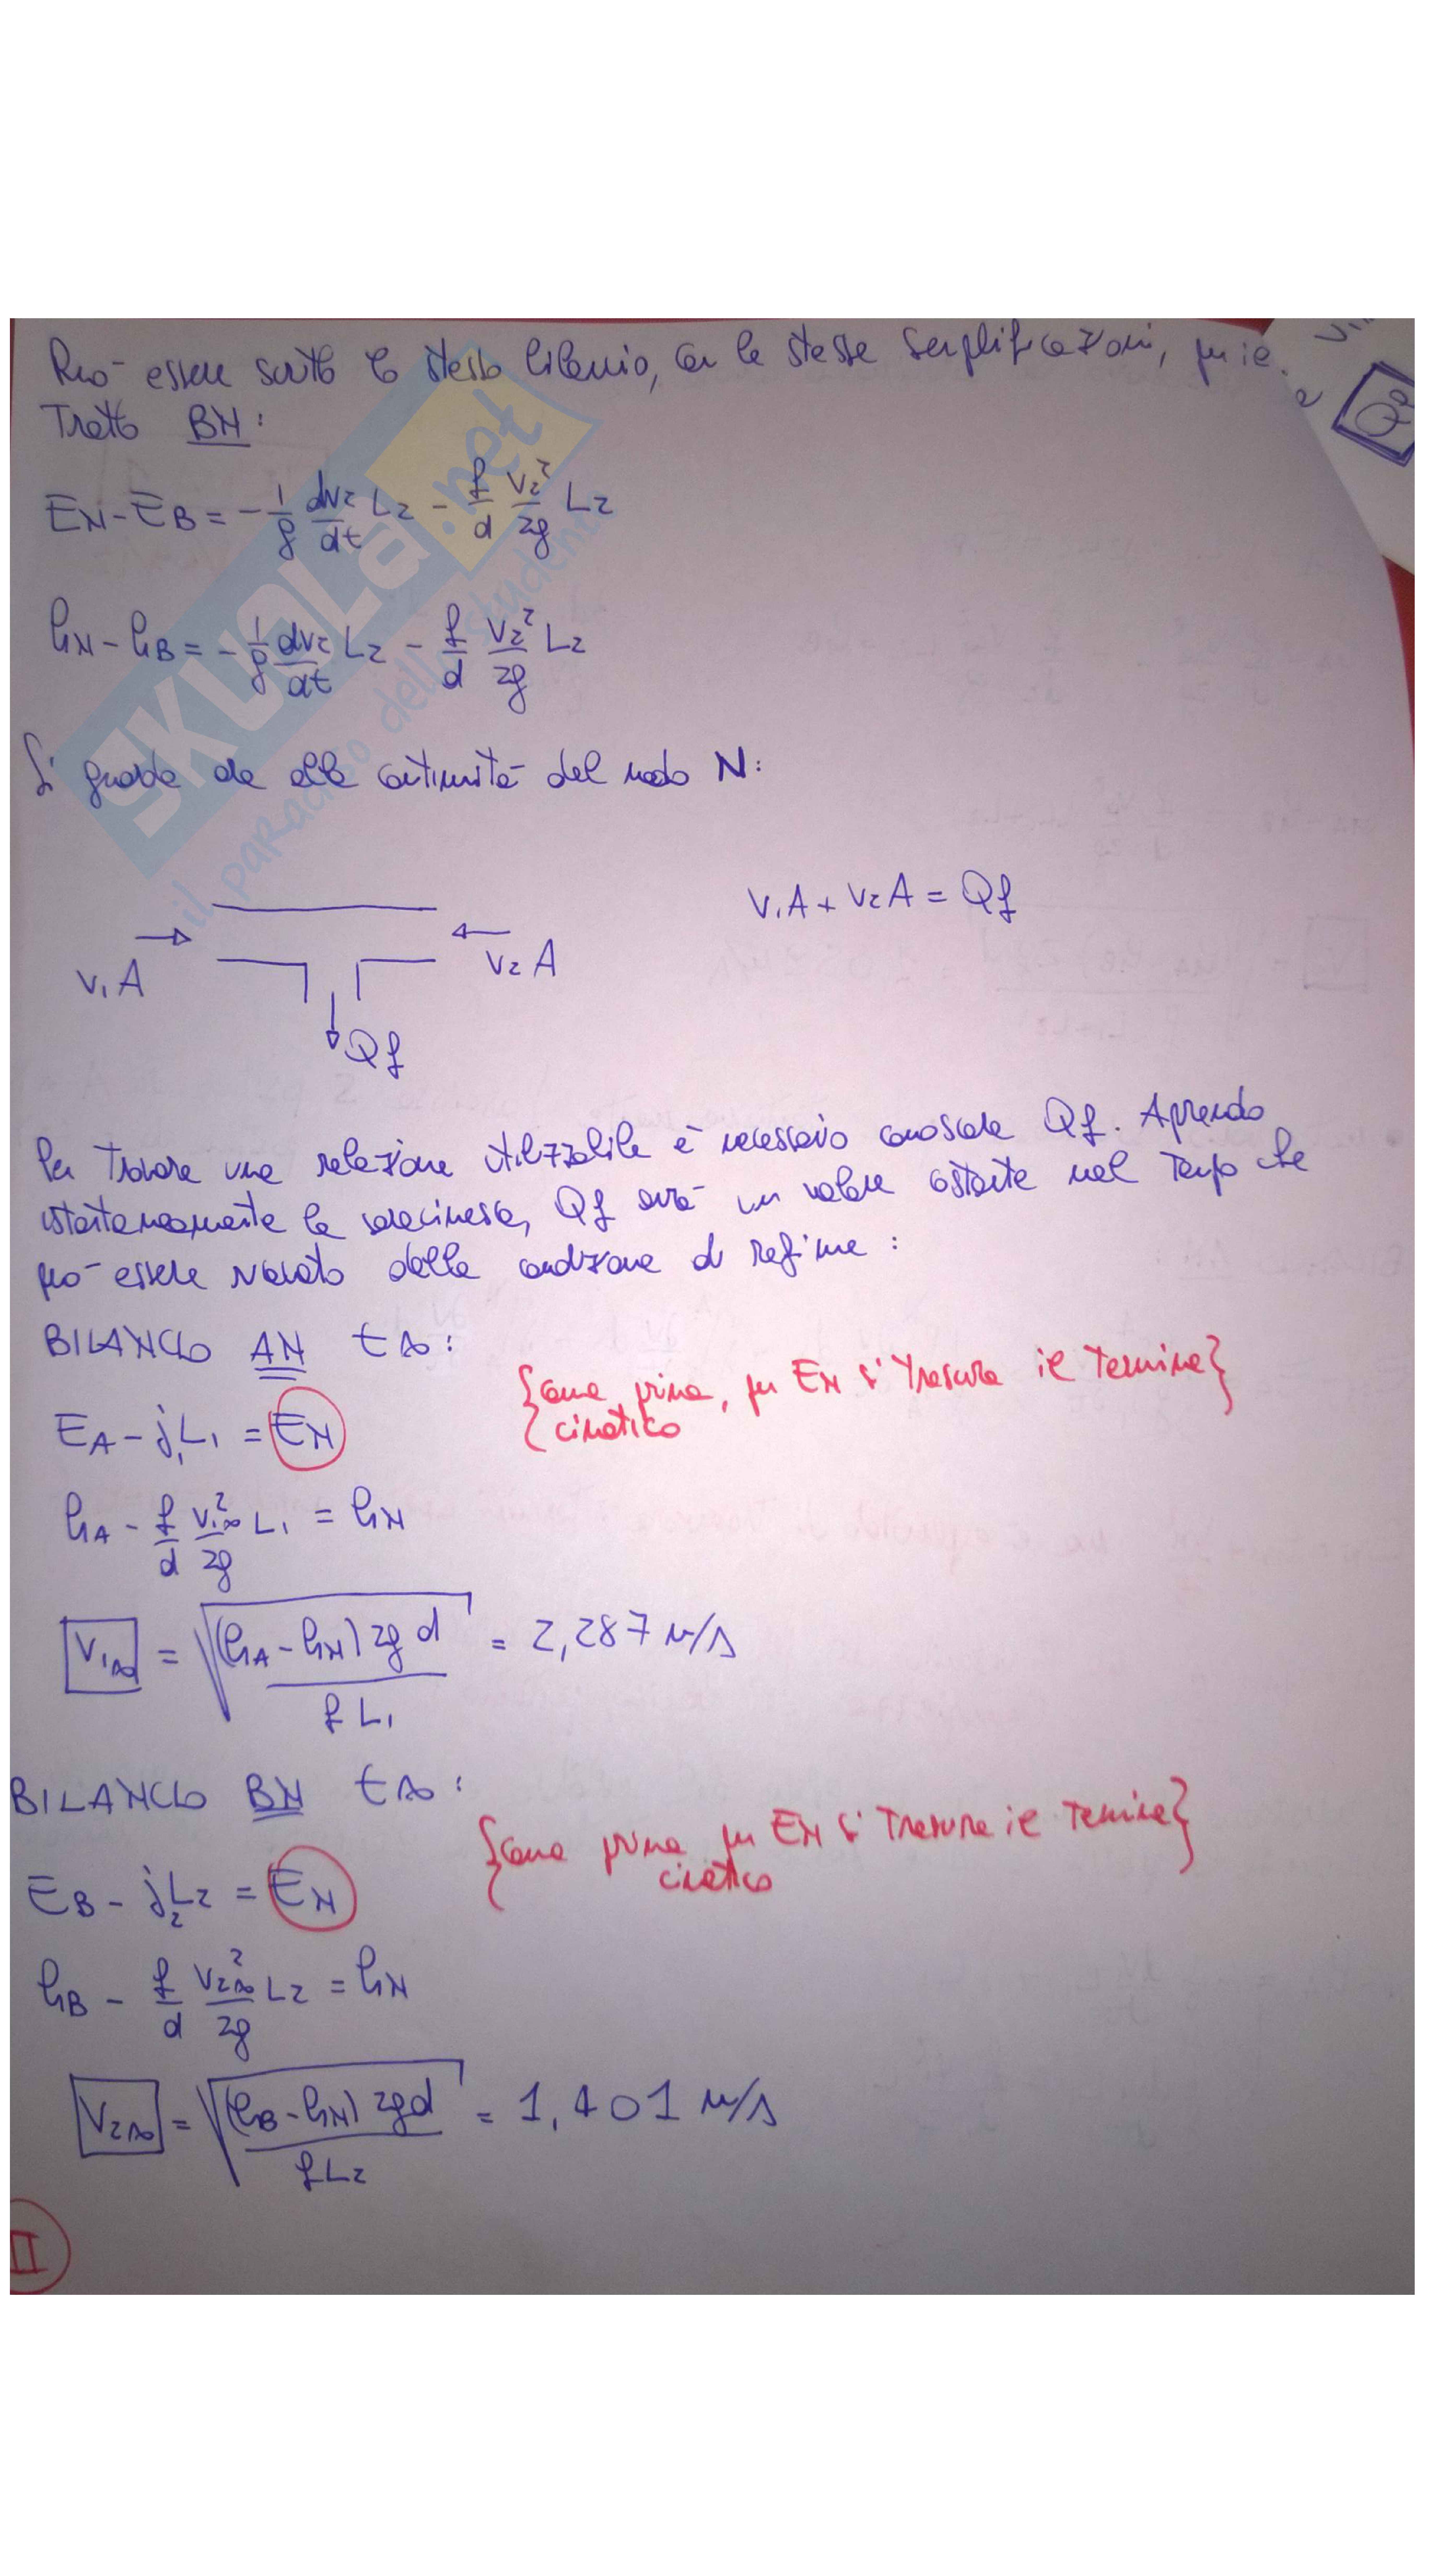 Può essere scritto lo stesso bilancio, con le stesse semplificazioni, per il
Tratto BN:
EN - EB = - 1/g dv2/dt L2 - f/d v2²/2g L2
hN - hB = - 1/g dv2/dt L2 - f/d v2²/2g L2
Si guarda ora alla continuità del nodo N:
V1A + V2A = Qf
V1A
V2A
Qf
Per trovare una relazione utilizzabile è necessario conoscere Qf. Aprendo
istantaneamente la saracinesca, Qf avrà un valore costante nel tempo che
può essere ricavato dalla condizione di regime:
BILANCIO AN t∞:
{come prima, per EN si trascura il termine}
{cinetico
EA - j1L1 = EN
hA - f/d v1∞²/2g L1 = hN
V1∞ = √((hA - hN) 2g d / f L1) = 2,287 m/s
BILANCIO BN t∞:
{come prima per EN si trascura il termine}
cinetico
EB - j2L2 = EN
hB - f/d v2∞²/2g L2 = hN
V2∞ = √((hB - hN) 2gd / f L2) = 1,401 m/s
II
SKUOLA.net
il paradiso dello studente